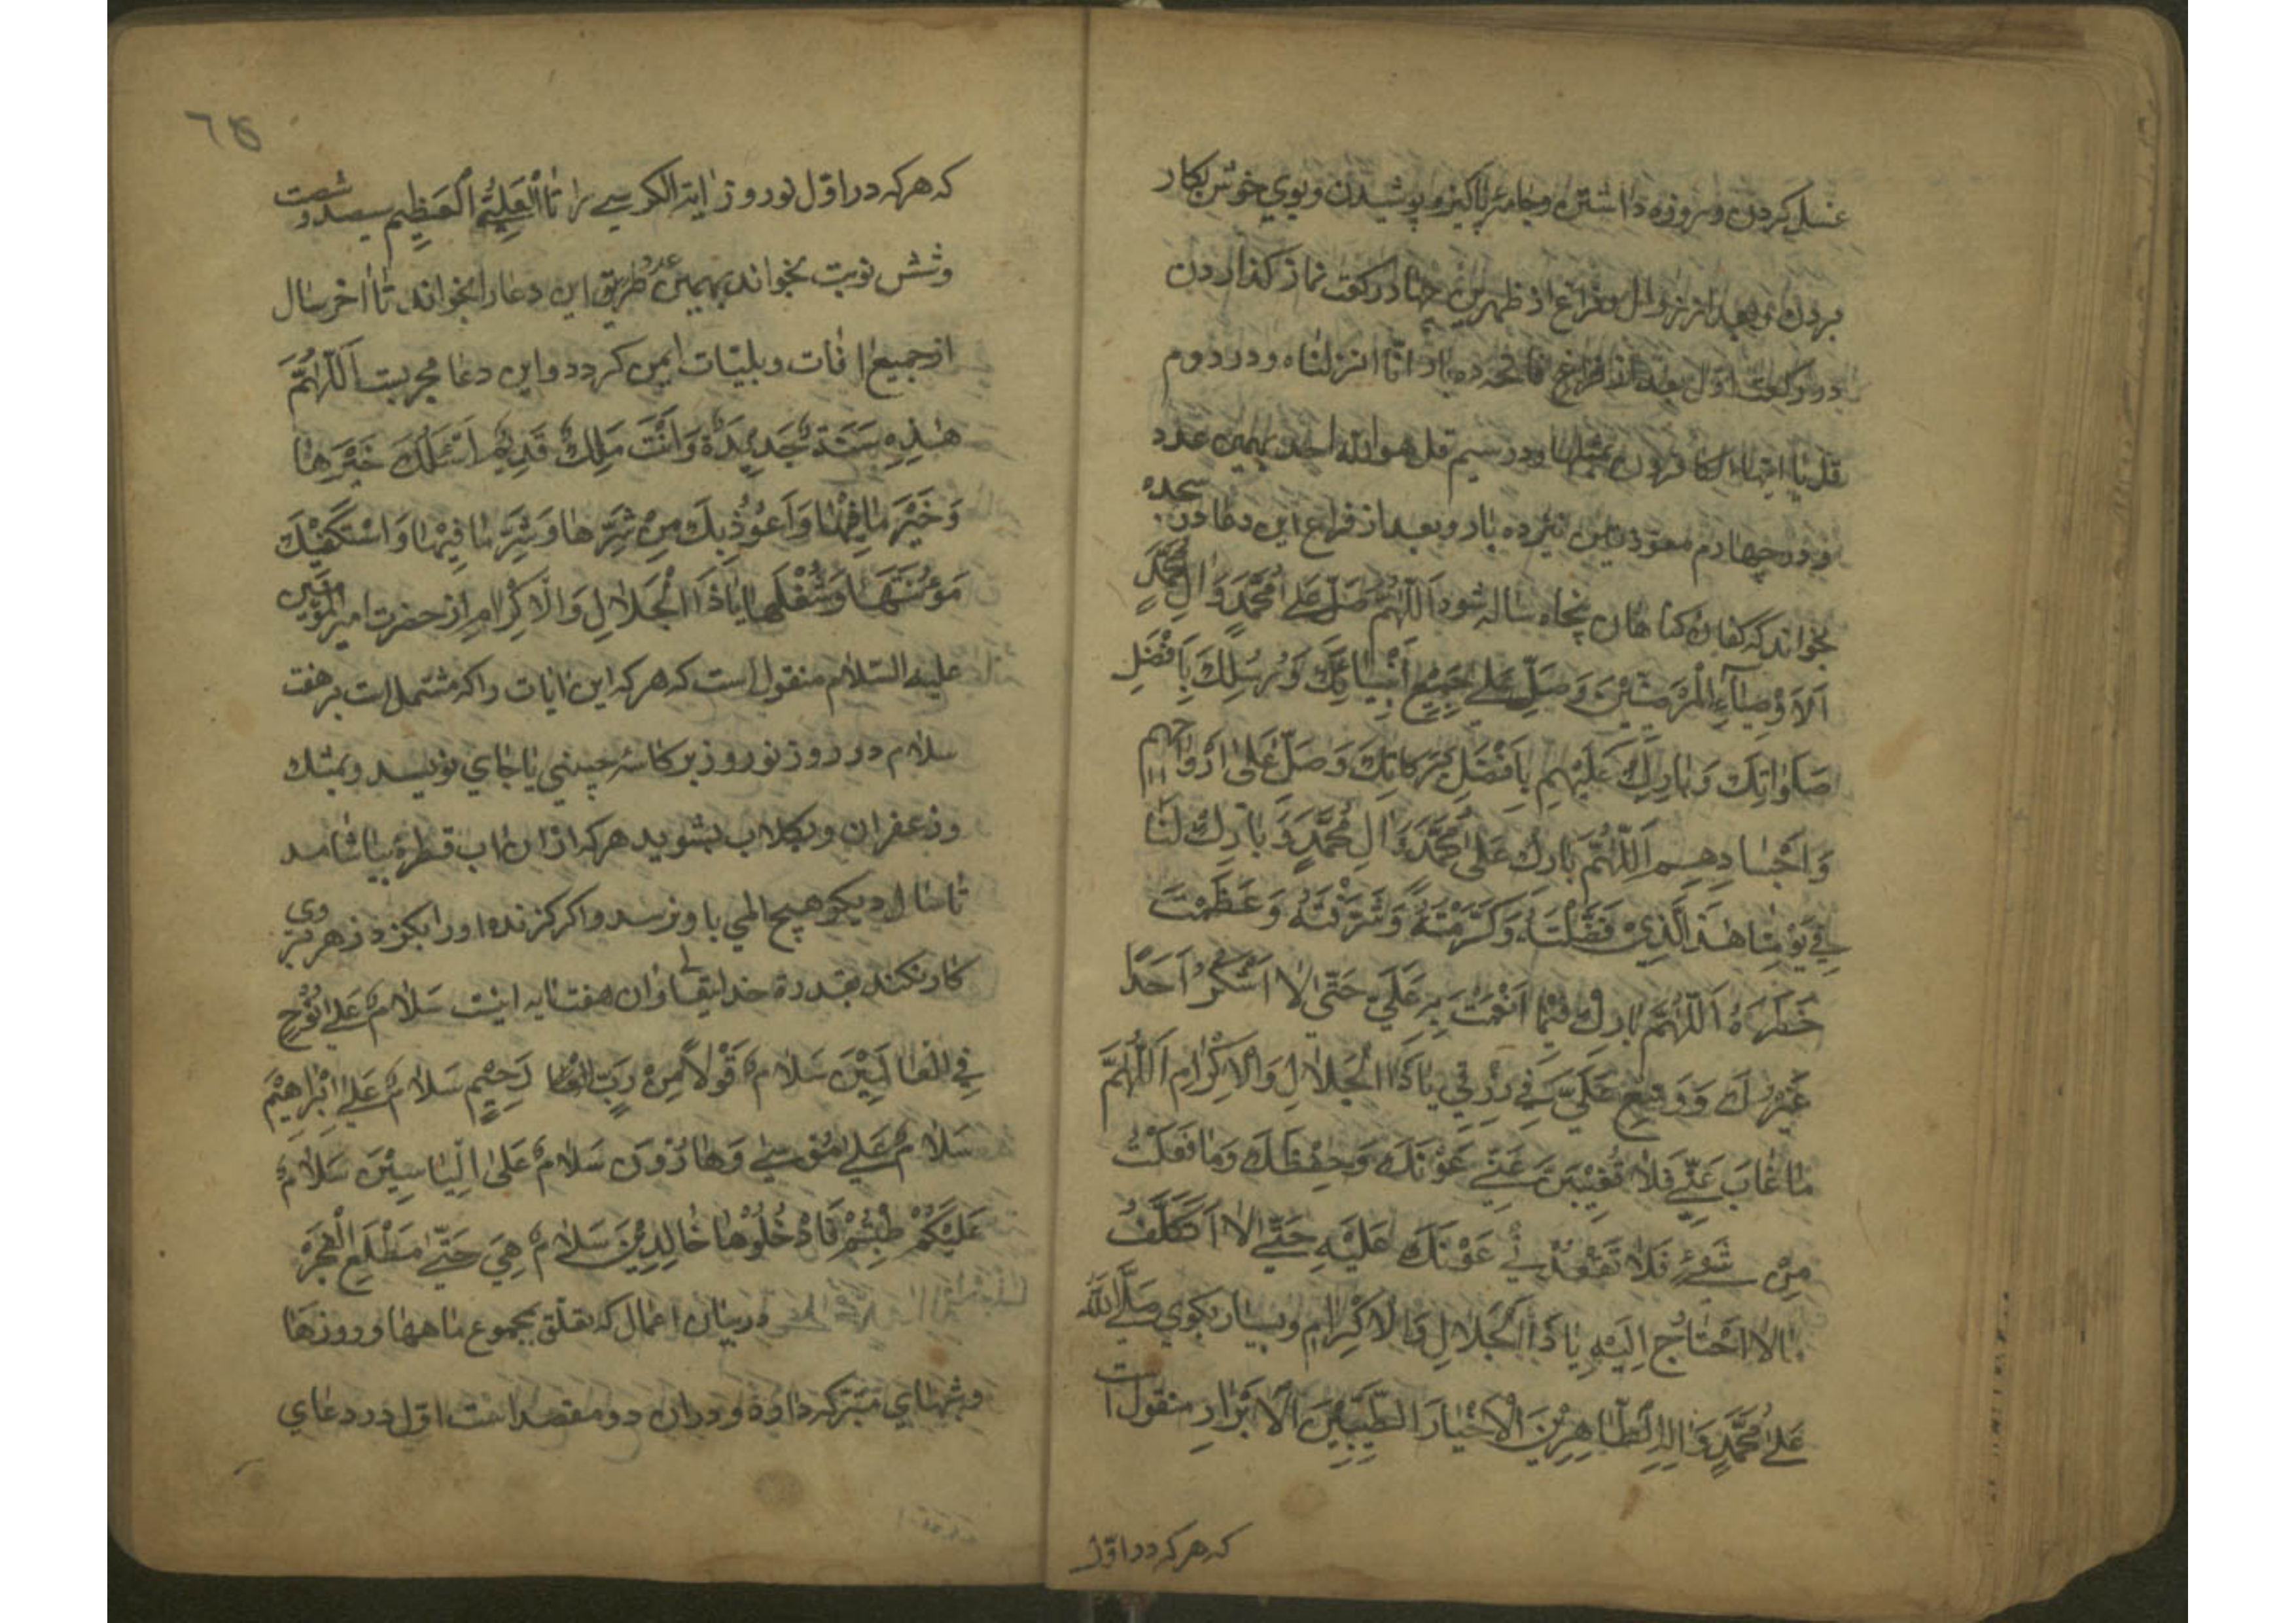 غسل کردن و روزه داشتن و جامهٔ پاکیزه پوشیدن و بوی خوش بکار
بردن و بعد از زوال و فراغ از ظهرین چهار رکعت نماز کذاردن
در رکعت اوّل بعد از فراغ فاتحه ده بار انّا انزلناه و در دوم
قل یا ایها الکافرون بمثلها و در سیم قل هو الله احد بهمین عدد
و در چهارم معوذتین نیز ده بار و بعد از فراغ این دعا در سجده
بخواند که کفارهٔ کناهان پنجاه ساله شود اَللّهُمَّ صَلِّ عَلی مُحَمَّدٍ وَ الِ مُحَمَّدٍ
اَلاَوْصِیآءِ الْمَرْضِیّینَ وَ صَلِّ عَلی جَمیعِ اَنْبِیائِکَ وَ رُسُلِکَ بِاَفْضَلِ
صَلَواتِکَ وَ بارِک عَلَیْهِم بِاَفْضَلِ بَرَکاتِکَ وَ صَلِّ عَلی اَرْواحِهِم
وَ اَجْسادِهِم اَللّهُمَّ بارِک عَلی مُحَمَّدٍ وَ الِ مُحَمَّدٍ وَ بارِک لَنا
فی یَوْمِنا هذَا الَّذی فَضَّلْتَهُ وَ کَرَّمْتَهُ وَ شَرَّفْتَهُ وَ عَظَّمْتَ
خَطَرَهُ اَللّهُمَّ بارِک فیما اَنْعَمْتَ بِهِ عَلَیَّ حَتّی لا اَشْکُرَ اَحَدًا
غَیْرَکَ وَ وَسِّعْ عَلَیَّ فی رِزْقی یا ذَا الْجَلالِ وَالْاِکْرامِ اَللّهُمَّ
ما غابَ عَنّی فَلا یَغیبَنَّ عَنّی عَوْنَکَ وَ حِفْظَکَ وَ ما فَقَدْتُ
مِنْ شَیْءٍ فَلا تَفْقِدْنی عَوْنَکَ عَلَیْهِ حَتّی لا اَتَکَلَّفَ
مالا اَحْتاجُ اِلَیْهِ یا ذَا الْجَلالِ وَالْاِکْرامِ و بسیار بکوی صَلَّی اللّهُ
عَلی مُحَمَّدٍ وَ الِهِ الطّاهِرینَ الْاَخْیارِ الطَّیِّبینَ الْاَبْرارِ منقول است
که هرکه در اوّل
٦٥
که هرکه در اوّل نوروز ایة الکرسی را تا اَلْعَلِیُّ الْعَظیم سیصد و شصت
و شش نوبت بخواند بهمین عدد طریق این دعا را بخواند تا اخر سال
از جمیع افات و بلیّات ایمن کردد و این دعا مجربست اَللّهُمَّ
هذِهِ سَنَةٌ جَدیدَةٌ وَ اَنْتَ مَلِکٌ قَدیمٌ اَسْئَلُکَ خَیْرَها
وَ خَیْرَ ما فیها وَ اَعُوذُ بِکَ مِنْ شَرِّها وَ شَرِّ ما فیها وَ اَسْتَکْفیکَ
مَؤُنَتَها وَ شُغْلَها یا ذَا الْجَلالِ وَالْاِکْرامِ از حضرت امیر المؤمنین
علیه السّلام منقول است که هرکه این ایات را که مشتمل است بر هفت
سلام در روز نوروز بر کاسهٔ چینی یا جای نویسد و بمشک
و زعفران و بکلاب بشوید هرکه از ان اب قطرهٔ بیاشامد
تا سال دیکر هیچ المی باو نرسد و اکر کزنده او را بکزد زهر بر وی
کار نکند بقدرة خدایتعالی و ان هفت ایه اینست سَلامٌ عَلی نُوحٍ
فِی الْعالَمینَ سَلامٌ قَوْلاً مِنْ رَبٍّ رَحیمٍ سَلامٌ عَلی اِبْراهیمَ
سَلامٌ عَلی مُوسی وَ هارُونَ سَلامٌ عَلی اِلْیاسینَ سَلامٌ
عَلَیْکُمْ طِبْتُمْ فَادْخُلُوها خالِدینَ سَلامٌ هِیَ حَتّی مَطْلَعِ الْفَجْرِ
در بیان اعمال که تعلّق بمجموع ماهها و روزها
و شبهای متبرّکه دارد و در ان دو مقصد است اوّل در دعای